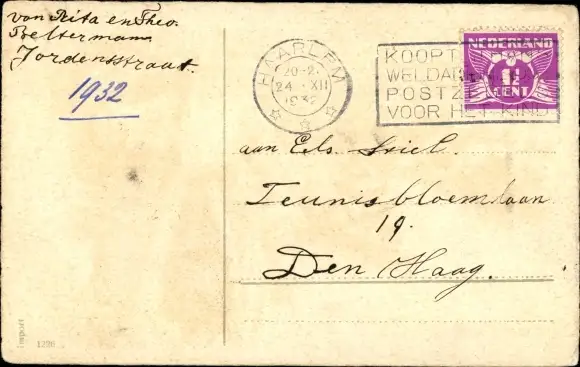 van Rita en Theo.
Beltermann
Jordensstraat.
1932
HAARLEM
20-2.
24 XII
1932
KOOPT
WELDA
POSTZE
VOOR HET KIND
NEDERLAND
1½
CENT
aan Eels
Teunisbloemlaan
19.
Den Haag.
Import
1226